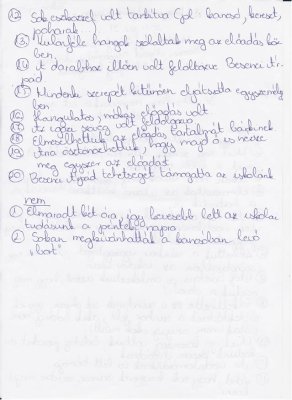 12. Sok eszközzel volt tarkítva (pl.: kancsó, kereset,
poharak
13. Különféle hangok szólaltak meg az előadás köz-
ben,
14. A darabhoz illően volt felöltözve Besenci Ár-
pád
15. Mindenki szerepét kitűnően eljátszotta egyszemély-
ben
16. Hangulatos, mókás előadás volt
17. Az üveg volt feldolgozva
18. Elmesélhettük az előadás tartalmát barátainknak.
19. Arra ösztönözhettük, hogy majd ő is nézze
meg egyszer az előadást.
20. Besenci Árpád tehetségét támogatta az iskolánk
nem
1. Elmaradt két óra, így kevesebb lett az iskolai
tudásunk a pénteki napra.
2. Sokan megkívánhatták a kancsóban levő
"bort".